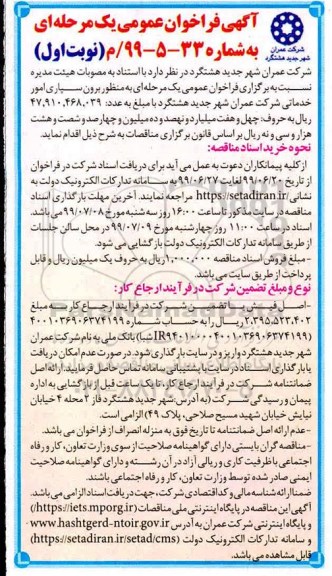 شرکت عمران
شهر جدید هشتگرد
آگهی فراخوان عمومی یک مرحله‌ای
به شماره ۳۳-۵-۹۹/م (نوبت اول)
شرکت عمران شهر جدید هشتگرد در نظر دارد با استناد به مصوبات هیئت مدیره
نسبت به برگزاری فراخوان عمومی یک مرحله‌ای به منظور برون سپاری امور
خدماتی شرکت عمران شهر جدید هشتگرد با مبلغ به عدد: ۴۷,۹۱۰,۴۶۸,۰۳۹
ریال به حروف: چهل و هفت میلیارد و نهصد و ده میلیون و چهارصد و شصت و هشت
هزار و سی و نه ریال بر اساس قانون برگزاری مناقصات به شرح ذیل اقدام نماید.
نحوه خرید اسناد مناقصه:
از کلیه پیمانکاران دعوت به عمل می آید برای دریافت اسناد شرکت در فراخوان
از تاریخ ۹۹/۰۶/۲۰ لغایت ۹۹/۰۶/۲۷ به سامانه تدارکات الکترونیک دولت به
نشانی https://setadiran.ir مراجعه نمایند. آخرین مهلت بارگذاری اسناد
مناقصه در سایت مذکور تا ساعت ۱۶:۰۰ روز سه شنبه مورخ ۹۹/۰۷/۰۸ می باشد.
اسناد در ساعت ۱۱:۰۰ روز چهارشنبه مورخ ۹۹/۰۷/۰۹ در محل سالن جلسات
از طریق سامانه تدارکات الکترونیک دولت بازگشایی می شود.
-مبلغ فروش اسناد مناقصه ۱,۰۰۰,۰۰۰ ریال به حروف یک میلیون ریال و قابل
پرداخت از طریق سایت می باشد.
نوع و مبلغ تضمین شرکت در فرآیند ارجاع کار:
-اصل فیش یا تضمین شرکت در فرآیند ارجاع کار به مبلغ
۲,۳۹۵,۵۲۳,۴۰۲ ریال را به حساب شماره ۴۰۰۱۰۳۶۹۰۶۳۷۴۱۹۹
شبا) بانک ملی به نام شرکت عمران
شهر جدید هشتگرد واریز و در سایت بارگذاری شود. در صورت عدم امکان دریافت
یا بارگذاری اسناد در سایت با پشتیبانی سامانه تماس حاصل فرمایید. ارائه اصل
ضمانتنامه شرکت در فرآیند ارجاع کار، تا یک ساعت قبل از بازگشایی به اداره
پیمان و رسیدگی شرکت (به آدرس: شهر جدید هشتگرد فاز ۲ محله ۴ خیابان
نیایش خیابان شهید مسیح صلاحی، پلاک ۴۹) الزامی است.
-عدم ارائه اصل ضمانتنامه تا تاریخ فوق به منزله انصراف از فراخوان می باشد.
-مناقصه گران بایستی دارای گواهینامه صلاحیت از سوی وزارت تعاون، کار و رفاه
اجتماعی با ظرفیت کاری و ریالی آزاد در آن رشته و دارای گواهینامه صلاحیت
ایمنی صادر شده توسط وزارت تعاون، کار و رفاه اجتماعی باشند.
ضمنا ارائه شناسه ملی و کد اقتصادی شرکت، جهت دریافت اسناد الزامی می باشد.
آگهی این مناقصه در پایگاه اینترنتی ملی مناقصات (https://iets.mporg.ir)
و پایگاه اینترنتی شرکت عمران به آدرس www.hashtgerd-ntoir.gov.ir
و سامانه تدارکات الکترونیک دولت (https://setadiran.ir/setad/cms)
قابل مشاهده می باشد.